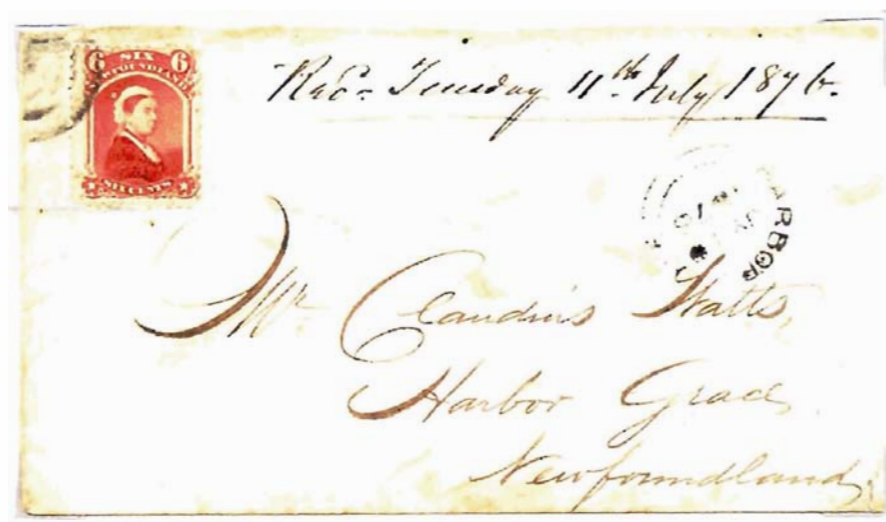 6 SIX 6
NEWFOUNDLAND
SIX CENTS
Recd. Tuesday 11th July 1876.
HARBOR
Mr. Claudius Watts,
Harbor Grace,
Newfoundland